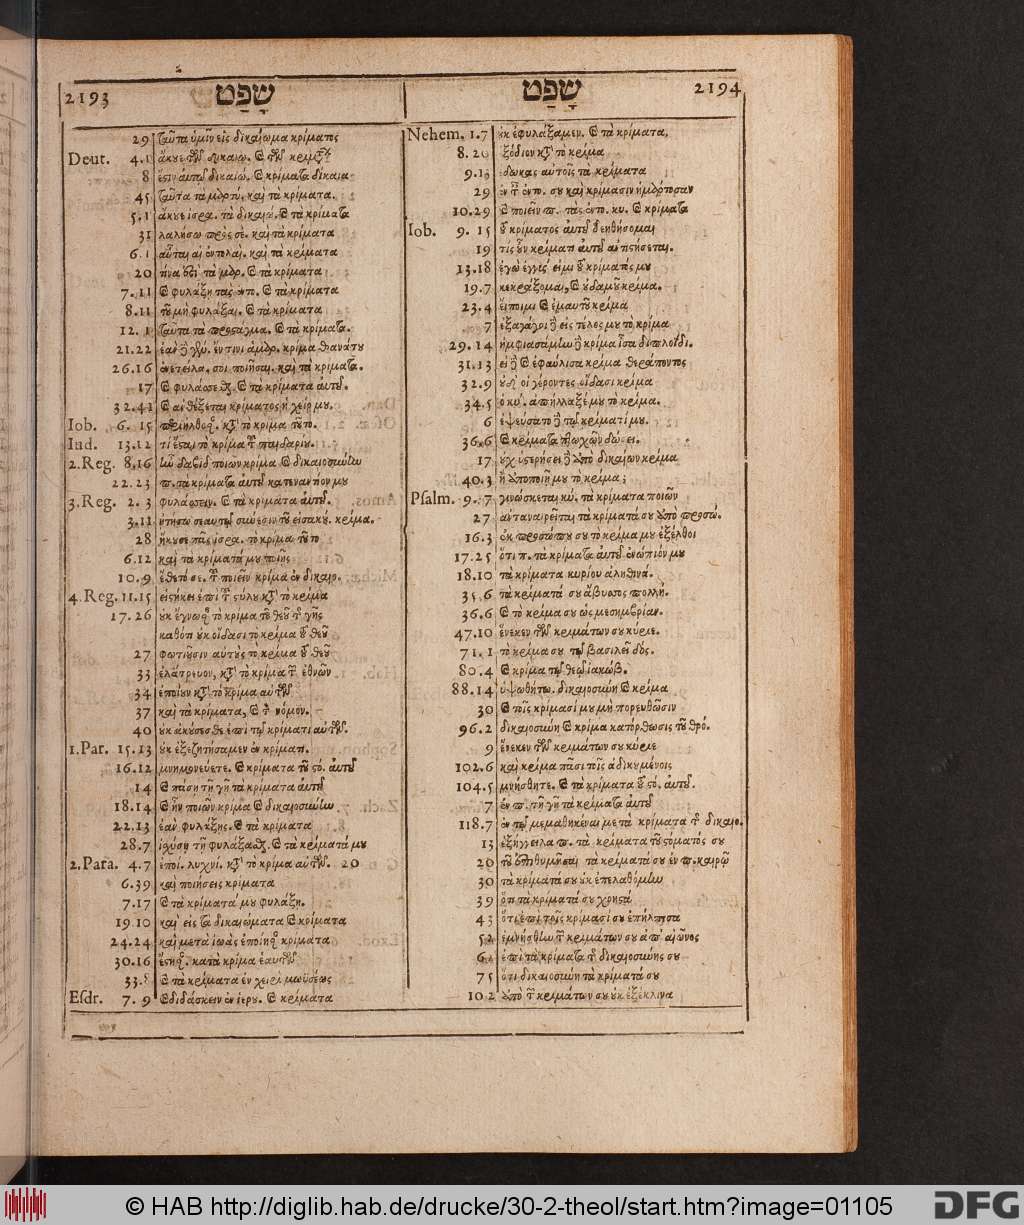 2193 שָׁפַט
29 ταῦτα ὑμῖν εἰς δικαίωμα κρίματος
Deut. 4.1 ἄκουε τῶν δικαιω. καὶ τῶν κριμάτ.
8 ἐστιν αὐτῷ δικαιώ. καὶ κρίματα δίκαια
45 ταῦτα τὰ μαρτύ. καὶ τὰ κρίματα.
5.1 ἄκουε ισρα. τὰ δικαιώ. καὶ τὰ κρίματα
31 λαλήσω πρὸς σέ. καὶ τὰ κρίματα
6.1 αὗται αἱ ἐντολαὶ. καὶ τὰ κρίματα
20 τίνα ὅτι τὰ μαρ. καὶ τὰ κρίματα
7.11 καὶ φυλάξῃ τὰς ἐντο. καὶ τὰ κρίματα
8.11 τοῦ μὴ φυλάξαι. καὶ τὰ κρίματα
12.1 ταῦτα τὰ προσταγμα. καὶ τὰ κρίματα.
21.22 ἐὰν δὲ γένη. ἔν τινι ἁμαρ. κρίμα θανάτου
26.16 ἐνετείλα. σοι ποιῆσαι. καὶ τὰ κρίματα.
17 καὶ φυλάσσεσθαι. καὶ τὰ κρίματα αὐτοῦ.
32.41 καὶ ἀνθέξεται κρίματος ἡ χείρ μου.
Iob. 6.15 περιῆλθον. κατὰ τὸ κρίμα τοῦτο.
Iud. 13.12 τί ἔσται τὸ κρίμα τοῦ παιδαρίου.
2.Reg. 8.16 ἦν δαβὶδ ποιῶν κρίμα καὶ δικαιοσύνην
22.23 π. τὰ κρίματα αὐτοῦ κατεναντίον μου
3.Reg. 2.3 φυλάσσειν. καὶ τὰ κρίματα αὐτοῦ.
3.11 ᾐτήσω σεαυτῷ σύνεσιν τοῦ εἰσακού. κρίμα.
28 ἤκουσε πᾶς ισρα. τὸ κρίμα τοῦτο
6.12 καὶ τὰ κρίματά μου ποιῇς
10.9 ἔθετό σε. τοῦ ποιεῖν κρίμα ἐν δικαιο.
4.Reg. 11.15 εἱστήκει ἐπὶ τοῦ στύλου κατὰ τὸ κρίμα
17.26 οὐκ ἔγνωσαν τὸ κρίμα τοῦ θεοῦ τῆς γῆς
καθότι οὐκ οἴδασι τὸ κρίμα τοῦ θεοῦ
27 φωτιοῦσιν αὐτοὺς τὸ κρίμα τοῦ θεοῦ
33 ἐλάτρευον, κατὰ τὸ κρίμα τῶν ἐθνῶν
34 ἐποίουν κατὰ τὸ κρίμα αὐτῶν
37 καὶ τὰ κρίματα, καὶ τὸν νόμον.
40 οὐκ ἀκούσεσθε ἐπὶ τῷ κρίματι αὐτῶν.
1.Par. 15.13 οὐκ ἐξεζητήσαμεν ἐν κρίματι.
16.12 μνημονεύετε. καὶ κρίματα τοῦ στό. αὐτοῦ
14 καὶ πάσῃ τῇ γῇ τὰ κρίματα αὐτοῦ
18.14 καὶ ἦν ποιῶν κρίμα καὶ δικαιοσύνην
22.13 ἐὰν φυλάξῃς. καὶ τὰ κρίματα
28.7 ἰσχύσῃ τοῦ φυλάξασθαι. καὶ τὰ κρίματά μου
2.Para. 4.7 ἐποί. λυχνί. κατὰ τὸ κρίμα αὐτῶν. 20
6.39 καὶ ποιήσεις κρίματα
7.17 καὶ τὰ κρίματά μου φυλάξῃ.
19.10 καὶ εἰς τὰ δικαιώματα καὶ κρίματα
24.24 καὶ μετὰ ἰωὰς ἐποίησε κρίματα
30.16 ἔστησαν. κατὰ κρίμα ἑαυτῶν
33.8 καὶ τὰ κρίματα ἐν χειρὶ μωϋσέως
Esdr. 7.9 καὶ διδάσκειν ἐν ἰσρα. καὶ κρίματα
שָׁפַט 2194
Nehem. 1.7 οὐκ ἐφυλάξαμεν. καὶ τὰ κρίματα,
8.20 ἐξόδιον κατὰ τὸ κρίμα
9.13 ἔδωκας αὐτοῖς τὰ κρίματα
29 ἐν ταῖς ἐντο. σου καὶ κρίμασιν ἡμάρτοσαν
10.29 καὶ ποιεῖν π. τὰς ἐντο. κυ. καὶ κρίματα
Iob. 9.15 τοῦ κρίματος αὐτοῦ δεηθήσομαι
19 τίς οὖν κρίματι αὐτοῦ ἀντιστήσεται.
13.18 ἐγὼ ἐγγύς εἰμι τοῦ κρίματός μου
19.7 κεκράξομαι, καὶ οὐδαμοῦ κρίμα.
23.4 εἴποιμι καὶ ἐμαυτοῦ κρίμα
7 ἐξαγάγοι δὲ εἰς τέλος μου τὸ κρίμα
29.14 ἠμφιασάμην δὲ κρίμα ἴσα διπλοΐδι.
31.13 εἰ δὲ καὶ ἐφαύλισα κρίμα θεράποντος
32.9 οὐδ' οἱ γέροντες οἴδασι κρίμα
34.5 ὁ κύ. ἀπήλλαξέ μου τὸ κρίμα.
6 ἐψεύσατο δὲ τῷ κρίματί μου.
36.6 καὶ κρίματα πτωχῶν δώσει.
17 οὐχ ὑστερήσει δὲ ἀπὸ δικαίων κρίμα
40.3 ἢ ἀποποιῇ μου τὸ κρίμα;
Psalm. 9.7 γινώσκεται κύ. τὰ κρίματα ποιῶν
27 ἀνταναιρεῖται τὰ κρίματά σου ἀπὸ προσώ.
16.3 ἐκ προσώπου σου τὸ κρίμα μου ἐξέλθοι
17.25 ὅτι π. τὰ κρίματα αὐτοῦ ἐνώπιόν μου
18.10 τὰ κρίματα κυρίου ἀληθινά.
35.6 τὰ κρίματά σου ἄβυσσος πολλή.
36.6 καὶ τὸ κρίμα σου ὡς μεσημβρίαν.
47.10 ἕνεκεν τῶν κριμάτων σου κύριε.
71.1 τὸ κρίμα σου τῷ βασιλεῖ δός.
80.4 καὶ κρίμα τῷ θεῷ ἰακώβ.
88.14 ὑψωθήτω. δικαιοσύνη καὶ κρίμα
30 καὶ τοῖς κρίμασί μου μὴ πορευθῶσιν
96.2 δικαιοσύνη καὶ κρίμα κατόρθωσις τοῦ θρό.
9 ἕνεκεν τῶν κριμάτων σου κύριε
102.6 καὶ κρίμα πᾶσι τοῖς ἀδικουμένοις
104.5 μνήσθητε. καὶ τὰ κρίματα τοῦ στό. αὐτοῦ.
7 ἐν π. τῇ γῇ τὰ κρίματα αὐτοῦ
118.7 ἐν τῷ μεμαθηκέναι με τὰ κρίματα τῆς δικαιο.
13 ἐξήγγειλα π. τὰ κρίματα τοῦ στόματός σου
20 τοῦ ἐπιθυμῆσαι τὰ κρίματά σου ἐν π. καιρῷ
30 τὰ κρίματά σου οὐκ ἐπελαθόμην
39 ὅτι τὰ κρίματά σου χρηστά
43 ὅτι ἐπὶ τοῖς κρίμασί σου ἐπήλπισα
52 ἐμνήσθην τῶν κριμάτων σου ἀπ' αἰῶνος
62 ἐπὶ τὰ κρίματα τῆς δικαιοσύνης σου
75 ὅτι δικαιοσύνη τὰ κρίματά σου
102 ἀπὸ τῶν κριμάτων σου οὐκ ἐξέκλινα
© HAB http://diglib.hab.de/drucke/30-2-theol/start.htm?image=01105
DFG